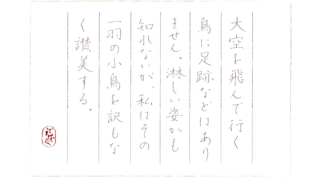 大空を飛んで行く
鳥に足跡などはあり
ません。淋しい姿かも
知れないが、私はその
一羽の小鳥を訳もな
く讃美する。